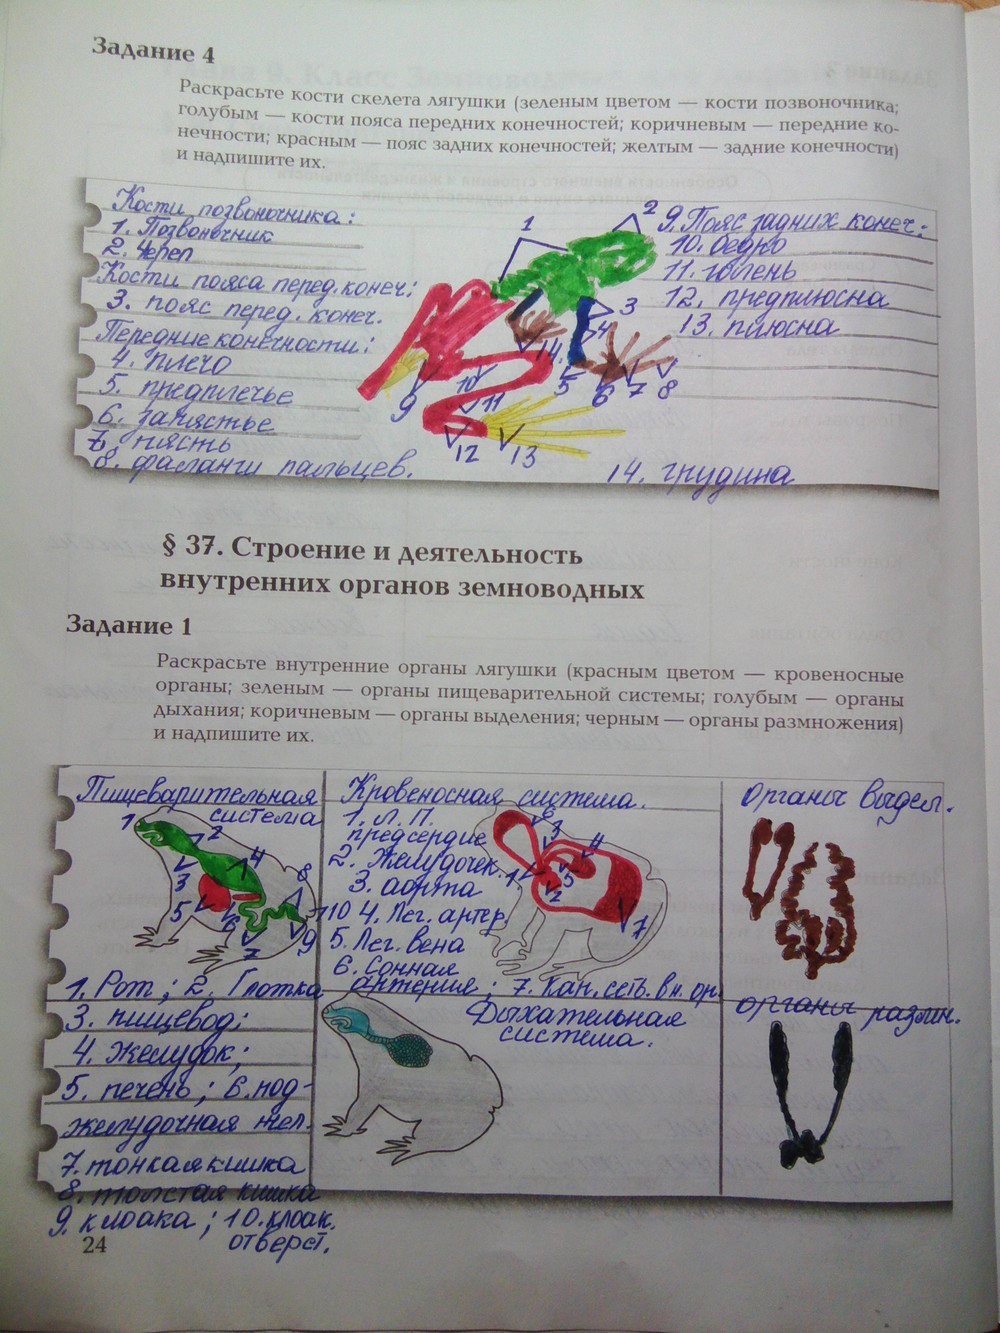 Задание 4
Раскрасьте кости скелета лягушки (зеленым цветом — кости позвоночника;
голубым — кости пояса передних конечностей; коричневым — передние ко-
нечности; красным — пояс задних конечностей; желтым — задние конечности)
и надпишите их.
Кости позвоночника:
1. Позвоночник
2. Череп
Кости пояса перед. конеч:
3. пояс перед. конеч.
Передние конечности:
4. плечо
5. предплечье
6. запястье
7. пясть
8. фаланги пальцев.
1
2
3
4
14.
5
6
7
8
9
10
11
12
13
9. Пояс задних конеч:
10. бедро
11. голень
12. предплюсна
13. плюсна
14. грудина
§ 37. Строение и деятельность
внутренних органов земноводных
Задание 1
Раскрасьте внутренние органы лягушки (красным цветом — кровеносные
органы; зеленым — органы пищеварительной системы; голубым — органы
дыхания; коричневым — органы выделения; черным — органы размножения)
и надпишите их.
Пищеварительная
система
1
2
3
4
5
6
7
8
9
10
1. Рот; 2. Глотка
3. пищевод;
4. Желудок;
5. печень; 6. под-
желудочная жел.
7. тонкая кишка
8. толстая кишка
9. клоака; 10. клоак.
отверст.
Кровеносная система.
1. Л. П.
предсердие
2. Желудочек
3. аорта
4. Лег. артер
5. Лег. вена
6. Сонная
артерия; 7. Кап. сеть вн. ор.
6
3
4
1
5
2
7
Дыхательная
система.
органы выдел.
органы размн.
24